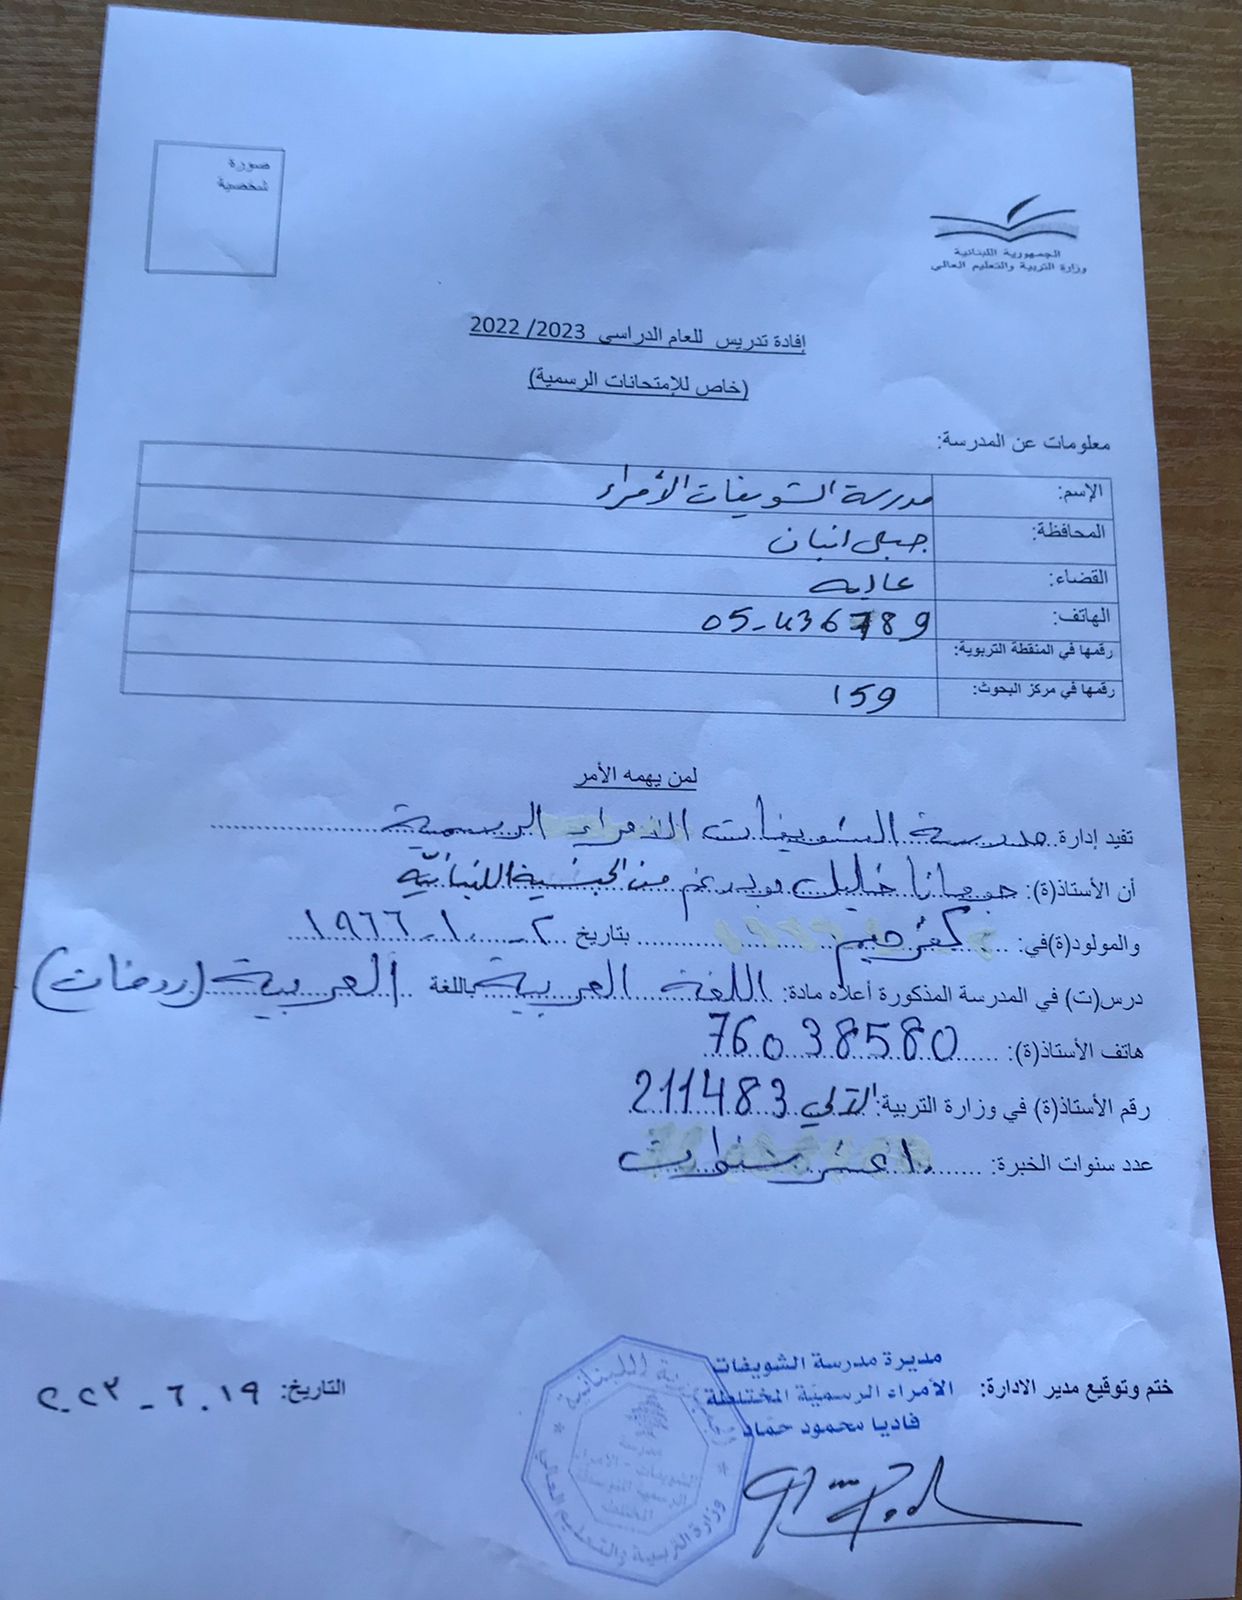 صورة
شخصية
الجمهورية اللبنانية
وزارة التربية والتعليم العالي
إفادة تدريس للعام الدراسي 2023/ 2022
(خاص للإمتحانات الرسمية)
معلومات عن المدرسة:
الإسم: مدرسة الشويفات الأمراء
المحافظة: جبل لبنان
القضاء: عاليه
الهاتف: 05-436789
رقمها في المنقطة التربوية:
رقمها في مركز البحوث: 159
لمن يهمه الأمر
تفيد إدارة مدرسة الشويفات الأمراء الرسمية
أن الأستاذ(ة): جومانا خليل من الجنسية اللبنانيّة
والمولود(ة)في: كفرحيم بتاريخ ٢-١٠-١٩٦٦
درس(ت) في المدرسة المذكورة أعلاه مادة: اللغة العربية باللغة العربية (روضات)
هاتف الأستاذ(ة): 76038580
رقم الأستاذ(ة) في وزارة التربية: الآلي 211483
عدد سنوات الخبرة: عشر سنوات
ختم وتوقيع مدير الادارة: مديرة مدرسة الشويفات
الأمراء الرسمية المختلطة
فاديا محمود حماد
التاريخ: ١٩-٦-٢٠٢٣
الجمهورية اللبنانية
وزارة التربية والتعليم العالي
مدرسة
الشويفات - الأمراء
الرسمية المتوسطة
المختلطة